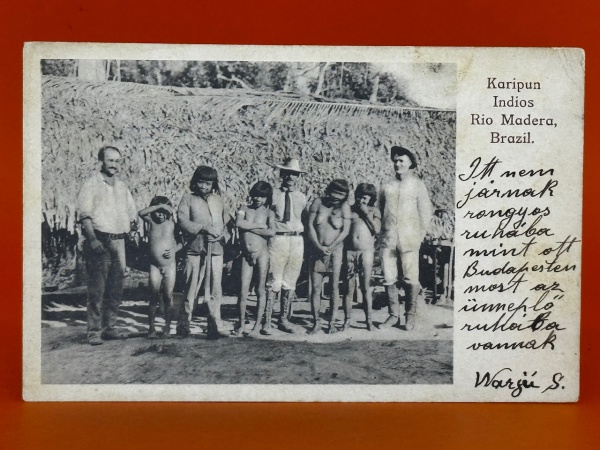 Karipun
Indios
Rio Madera,
Brazil.
Itt nem
járnak
rongyos
ruhába
mint ott
Budapesten
most az
ünneplő
ruhába
vannak
Warjú S.